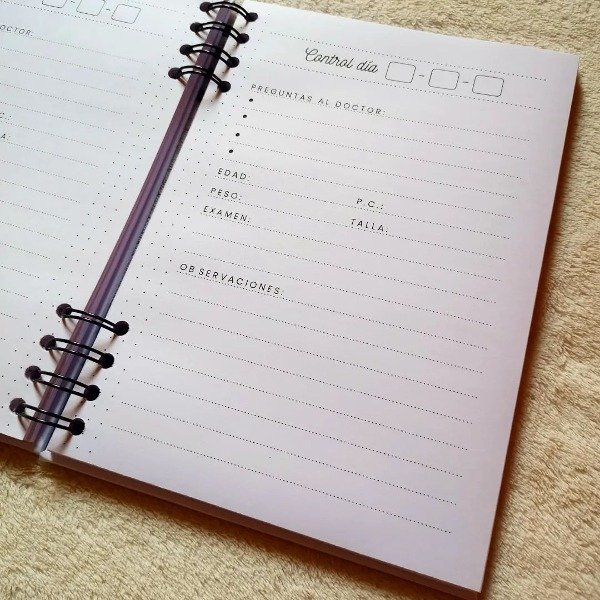 OCTOR:
Control día - -
PREGUNTAS AL DOCTOR:
EDAD:
PESO: P.C.:
EXAMEN: TALLA:
OBSERVACIONES: